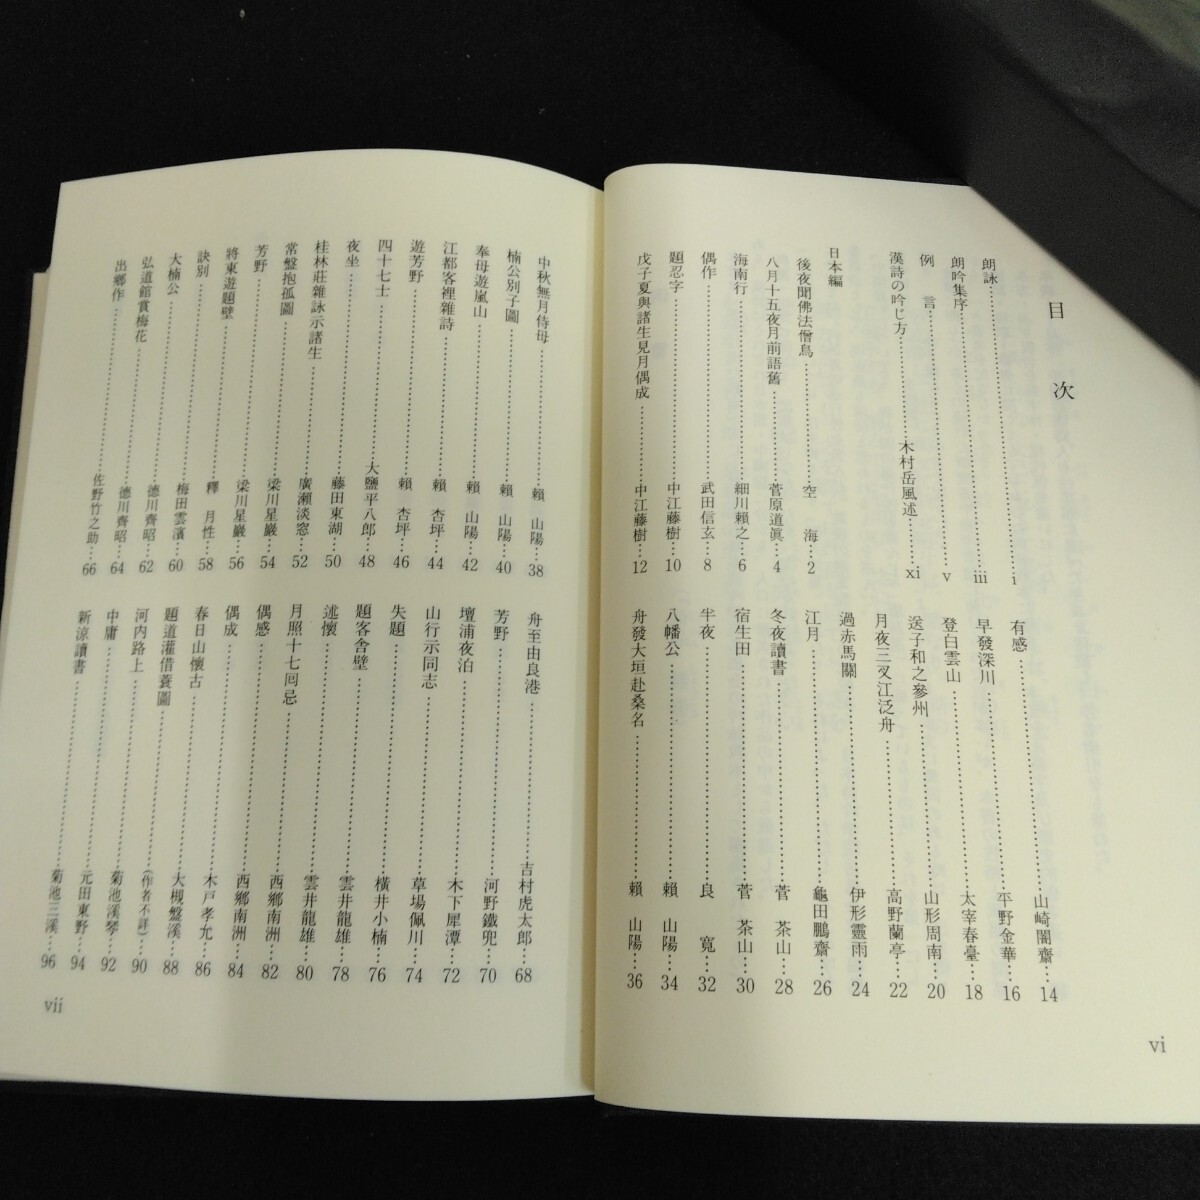 目次
朗詠……i
朗吟集序……iii
例言……v
漢詩の吟じ方……木村岳風述……xi
日本編
後夜聞佛法僧鳥……空海…2
八月十五夜月前語舊……菅原道眞…4
海南行……細川賴之…6
偶作……武田信玄…8
題忍字……中江藤樹…10
戊子夏與諸生見月偶成……中江藤樹…12
有感……山崎闇齋…14
早發深川……平野金華…16
登白雲山……太宰春臺…18
送子和之參州……山形周南…20
月夜三叉江泛舟……高野蘭亭…22
過赤馬關……伊形靈雨…24
江月……龜田鵬齋…26
冬夜讀書……菅茶山…28
宿生田……菅茶山…30
半夜……良寬…32
八幡公……賴山陽…34
舟發大垣赴桑名……賴山陽…36
vi
中秋無月侍母……賴山陽…38
楠公別子圖……賴山陽…40
奉母遊嵐山……賴山陽…42
江都客裡雜詩……賴杏坪…44
遊芳野……賴杏坪…46
四十七士……大鹽平八郎…48
夜坐……藤田東湖…50
桂林莊雜詠示諸生……廣瀨淡窓…52
常盤抱孤圖……梁川星巖…54
芳野……梁川星巖…56
將東遊題壁……釋月性…58
訣別……梅田雲濱…60
大楠公……德川齊昭…62
弘道館賞梅花……德川齊昭…64
出鄉作……佐野竹之助…66
舟至由良港……吉村虎太郎…68
芳野……河野鐵兜…70
壇浦夜泊……木下犀潭…72
山行示同志……草場佩川…74
失題……橫井小楠…76
題客舍壁……雲井龍雄…78
述懷……雲井龍雄…80
月照十七囘忌……西鄉南洲…82
偶感……西鄉南洲…84
偶成……木戸孝允…86
春日山懷古……大槻盤溪…88
題道灌借蓑圖……(作者不詳)…90
河内路上……菊池溪琴…92
中庸……元田東野…94
新涼讀書……菊池三溪…96
vii